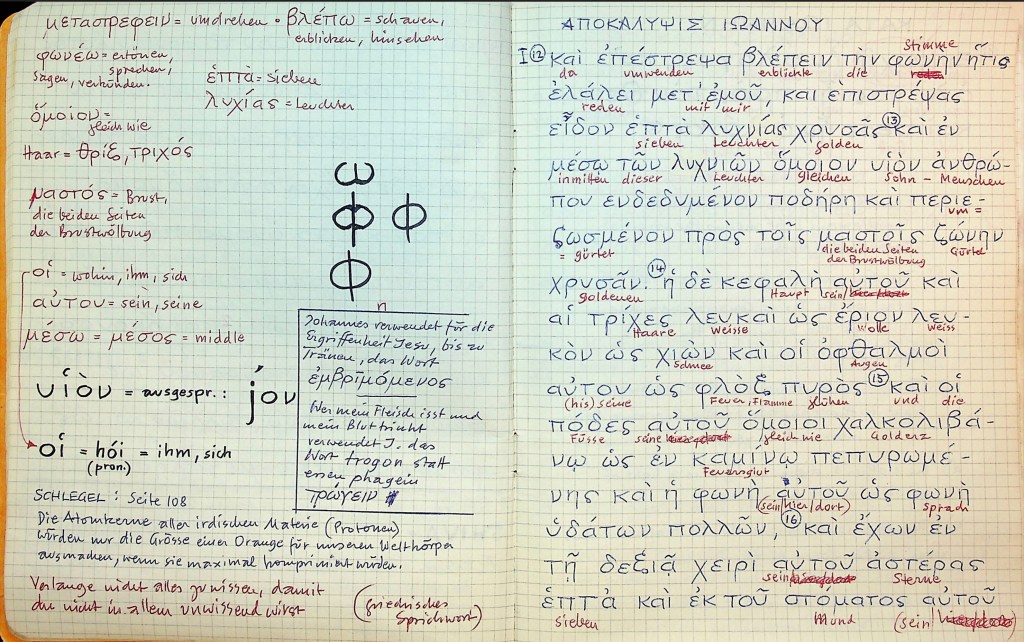 μεταστρεφειν = umdrehen • βλέπω = schauen,
erblicken, hinsehen
φωνέω = ertönen,
sprechen,
sagen, verkünden.
ἑπτὰ = sieben
λυχίας = Leuchter
ὅμοιον =
gleich wie
Haar = θρίξ, τριχός
μαστός = Brust,
die beiden Seiten
der Brustwölbung
οἱ = wohin, ihm, sich
αὐτου = sein, seine
μέσω = μέσος = middle
υἱὸν = ausgespr.: jον
οἱ = hói = ihm, sich
(pron.)
ω
Φ Φ
Φ
n
Johannes verwendet für die
Ergriffenheit Jesu, bis zu
Tränen, das Wort
ἐμβριμόμενος
Wer mein Fleisch isst und
mein Blut trinkt
verwendet J. das
Wort trogon statt
essen phagein
τρώγειν
SCHLEGEL: Seite 108
Die Atomkerne aller irdischen Materie (Protonen)
würden nur die Grösse einer Orange für unseren Weltkörper
ausmachen, wenn sie maximal komprimiert würden.
Verlange nicht alles zu wissen, damit
du nicht in allem unwissend wirst
(griechisches
Sprichwort)
ΑΠΟΚΑΛΥΨΙΣ ΙΩΑΝΝΟΥ
Stimme
I ⑫ καὶ ἐπέστρεψα βλέπειν τὴν φωνην ἥτις
da umwenden erblickte die reden
ἐλάλει μετ' ἐμοῦ, και επιστρέψας
reden mit mir
εἶδον ἑπτὰ λυχνίας χρυσᾶς ⑬ καὶ ἐν
sieben Leuchter golden
μέσω τῶν λυχνιῶν ὅμοιον υἱὸν ἀνθρώ-
inmitten dieser Leuchter gleichen Sohn - Menschen
που ενδεδυμένον ποδήρη καὶ περιε-
um =
ζωσμένον πρὸς τοῖς μαστοῖς ζώνην
= gürtet die beiden Seiten Gürtel
der Brustwölbung
χρυσᾶν. ⑭ ἡ δὲ κεφαλὴ αὐτοῦ καὶ
goldenen Haupt sein
αἱ τρίχες λευκαὶ ὡς ἔριον λευ-
Haare weisse wolle weiss
κὸν ὡς χιὼν καὶ οἱ ὀφθαλμοὶ
Schnee Augen
αὐτου ὡς φλὸξ πυρὸς ⑮ καὶ οἱ
(his) seine Feuer, Flamme glühen und die
πόδες αὐτοῦ ὅμοιοι χαλκολιβά-
Füsse seine gleich wie Golderz
νῳ ὡς ἐν καμίνῳ πεπυρωμέ-
Feuersglut
νης καὶ ἡ φωνὴ αὐτοῦ ὡς φωνὴ
(sein/hier/dort) sprach
ὑδάτων πολλῶν, ⑯ καὶ ἔχων ἐν
τῇ δεξιᾷ χειρὶ αὐτοῦ ἀστέρας
sein Sterne
ἑπτὰ καὶ ἐκ τοῦ στόματος αὐτοῦ
sieben Mund (sein